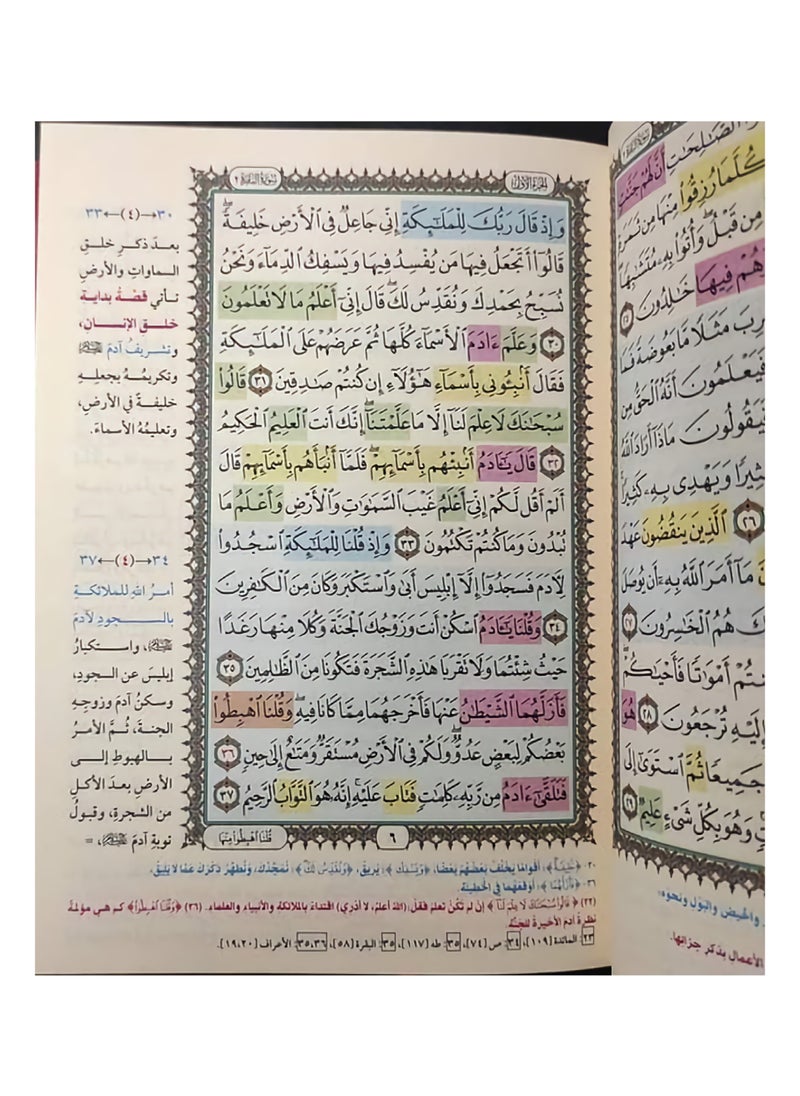 الجزء الأول
سورة البقرة ٢
وَإِذْ قَالَ رَبُّكَ لِلْمَلَـٰٓئِكَةِ إِنِّى جَاعِلٌ فِى ٱلْأَرْضِ خَلِيفَةً ۖ
قَالُوٓا۟ أَتَجْعَلُ فِيهَا مَن يُفْسِدُ فِيهَا وَيَسْفِكُ ٱلدِّمَآءَ وَنَحْنُ
نُسَبِّحُ بِحَمْدِكَ وَنُقَدِّسُ لَكَ ۖ قَالَ إِنِّىٓ أَعْلَمُ مَا لَا تَعْلَمُونَ
٣٠ وَعَلَّمَ ءَادَمَ ٱلْأَسْمَآءَ كُلَّهَا ثُمَّ عَرَضَهُمْ عَلَى ٱلْمَلَـٰٓئِكَةِ
فَقَالَ أَنۢبِـُٔونِى بِأَسْمَآءِ هَـٰٓؤُلَآءِ إِن كُنتُمْ صَـٰدِقِينَ ٣١ قَالُوا۟
سُبْحَـٰنَكَ لَا عِلْمَ لَنَآ إِلَّا مَا عَلَّمْتَنَآ ۖ إِنَّكَ أَنتَ ٱلْعَلِيمُ ٱلْحَكِيمُ
٣٢ قَالَ يَـٰٓـَٔادَمُ أَنۢبِئْهُم بِأَسْمَآئِهِمْ ۖ فَلَمَّآ أَنۢبَأَهُم بِأَسْمَآئِهِمْ قَالَ
أَلَمْ أَقُل لَّكُمْ إِنِّىٓ أَعْلَمُ غَيْبَ ٱلسَّمَـٰوَٰتِ وَٱلْأَرْضِ وَأَعْلَمُ مَا
تُبْدُونَ وَمَا كُنتُمْ تَكْتُمُونَ ٣٣ وَإِذْ قُلْنَا لِلْمَلَـٰٓئِكَةِ ٱسْجُدُوا۟
لِـَٔادَمَ فَسَجَدُوٓا۟ إِلَّآ إِبْلِيسَ أَبَىٰ وَٱسْتَكْبَرَ وَكَانَ مِنَ ٱلْكَـٰفِرِينَ
٣٤ وَقُلْنَا يَـٰٓـَٔادَمُ ٱسْكُنْ أَنتَ وَزَوْجُكَ ٱلْجَنَّةَ وَكُلَا مِنْهَا رَغَدًا
حَيْثُ شِئْتُمَا وَلَا تَقْرَبَا هَـٰذِهِ ٱلشَّجَرَةَ فَتَكُونَا مِنَ ٱلظَّـٰلِمِينَ ٣٥
فَأَزَلَّهُمَا ٱلشَّيْطَـٰنُ عَنْهَا فَأَخْرَجَهُمَا مِمَّا كَانَا فِيهِ ۖ وَقُلْنَا ٱهْبِطُوا۟
بَعْضُكُمْ لِبَعْضٍ عَدُوٌّ ۖ وَلَكُمْ فِى ٱلْأَرْضِ مُسْتَقَرٌّ وَمَتَـٰعٌ إِلَىٰ حِينٍ ٣٦
فَتَلَقَّىٰٓ ءَادَمُ مِن رَّبِّهِۦ كَلِمَـٰتٍ فَتَابَ عَلَيْهِ ۚ إِنَّهُۥ هُوَ ٱلتَّوَّابُ ٱلرَّحِيمُ ٣٧
٦
قُلْنَا ٱهْبِطُوا۟ مِنْهَا
٣٠←(٤)→٣٣
بعدَ ذكرِ خلقِ
السماواتِ والأرضِ
تأتي قصّةُ بدايةِ
خلقِ الإنسانِ،
وتشريفُ آدمَ ﷺ
وتكريمُهُ بجعلِهِ
خليفةً في الأرضِ،
وتعليمُهُ الأسماءَ.
٣٤←(٤)→٣٧
أمرُ اللهِ للملائكةِ
بالسجودِ لآدمَ
ﷺ، واستكبارُ
إبليسَ عن السجودِ،
وسكنُ آدمَ وزوجِهِ
الجنةَ، ثُمَّ الأمرُ
بالهبوطِ إلى
الأرضِ بعدَ الأكلِ
من الشجرةِ، وقبولُ
توبةِ آدمَ ﷺ، =
٣٠- ﴿خَلِيفَةً﴾: أقوامًا يخلُفُ بعضُهُم بعضًا، ﴿وَيَسْفِكُ﴾: يُرِيقُ، ﴿وَنُقَدِّسُ لَكَ﴾: نُمَجِّدُكَ، ونُطَهِّرُ ذِكْرَكَ عمّا لا يليقُ،
٣٦- ﴿فَأَزَلَّهُمَا﴾: أوقعَهُما في الخطيئةِ.
(٣٢) ﴿قَالُوا۟ سُبْحَـٰنَكَ لَا عِلْمَ لَنَآ﴾ إن لم تكُنْ تعلمُ فقلْ: (اللهُ أعلمُ، لا أدري) اقتداءً بالملائكةِ والأنبياءِ والعلماءِ. (٣٦) ﴿وَقُلْنَا ٱهْبِطُوا۟﴾ كم هي مؤلمة
نظرة آدم الأخيرة للجنّة.
٢٣: المائدة [١٠٩]، ٣٤: ص [٧٤]، ٣٥: طه [١١٧]، ٣٥: البقرة [٥٨]، ٣٥،٣٦: الأعراف [١٩،٢٠].
ٱلصَّـٰلِحَـٰتِ أَنَّ لَهُمْ جَنَّـٰتٍ
كُلَّمَا رُزِقُوا۟ مِنْهَا مِن ثَمَرَةٍ
مِن قَبْلُ ۖ وَأُتُوا۟ بِهِۦ مُتَشَـٰبِهًا
هُمْ فِيهَا خَـٰلِدُونَ ٢٥
مَثَلًا مَّا بَعُوضَةً فَمَا
فَيَعْلَمُونَ أَنَّهُ ٱلْحَقُّ مِن
فَيَقُولُونَ مَاذَآ أَرَادَ ٱللَّهُ
وَيَهْدِى بِهِۦ كَثِيرًا
٢٦ ٱلَّذِينَ يَنقُضُونَ عَهْدَ
مَآ أَمَرَ ٱللَّهُ بِهِۦٓ أَن يُوصَلَ
هُمُ ٱلْخَـٰسِرُونَ ٢٧
أَمْوَٰتًا فَأَحْيَـٰكُمْ ۖ
إِلَيْهِ تُرْجَعُونَ ٢٨ هُوَ
جَمِيعًا ثُمَّ ٱسْتَوَىٰٓ إِلَى
وَهُوَ بِكُلِّ شَىْءٍ عَلِيمٌ ٢٩
والحيض والبول ونحوه،
الأعمال بذكر جزائها.